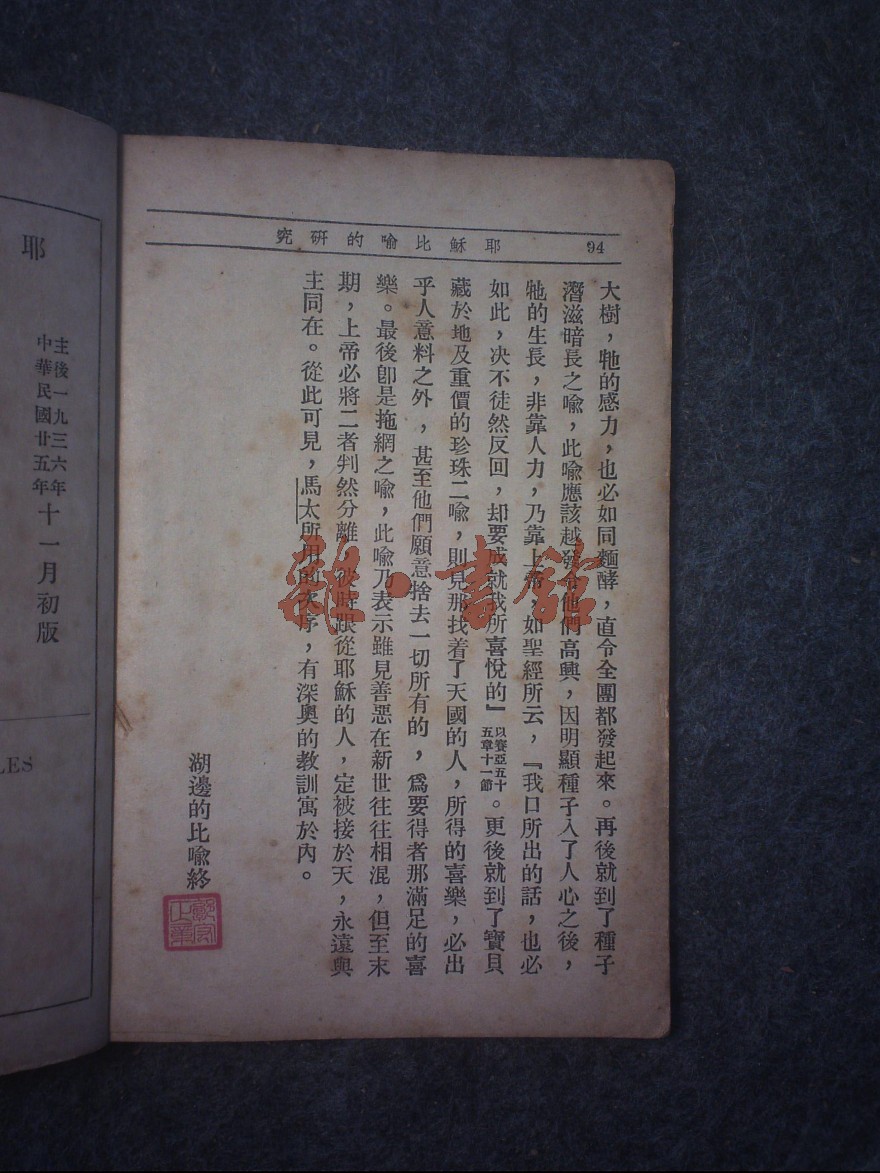 94
耶穌比喻的研究
大樹，牠的感力，也必如同麵酵，直令全團都發起來。再後就到了種子
潛滋暗長之喻，此喻應該越發令他們高興，因明顯種子入了人心之後，
牠的生長，非靠人力，乃靠上帝，如聖經所云，『我口所出的話，也必
如此，決不徒然反回，却要成就我所喜悅的』以賽亞五十五章十一節。更後就到了寶貝
藏於地及重價的珍珠二喻，則見那找着了天國的人，所得的喜樂，必出
乎人意料之外，甚至他們願意捨去一切所有的，爲要得者那滿足的喜
樂。最後卽是拖網之喻，此喻乃表示雖見善惡在新世往往相混，但至末
期，上帝必將二者判然分離，彼時跟從耶穌的人，定被接於天，永遠與
主同在。從此可見，馬太所用的次序，有深奧的教訓寓於內。
湖邊的比喻終
耶
主後一九三六年
中華民國廿五年
十一月初版
LES
書館